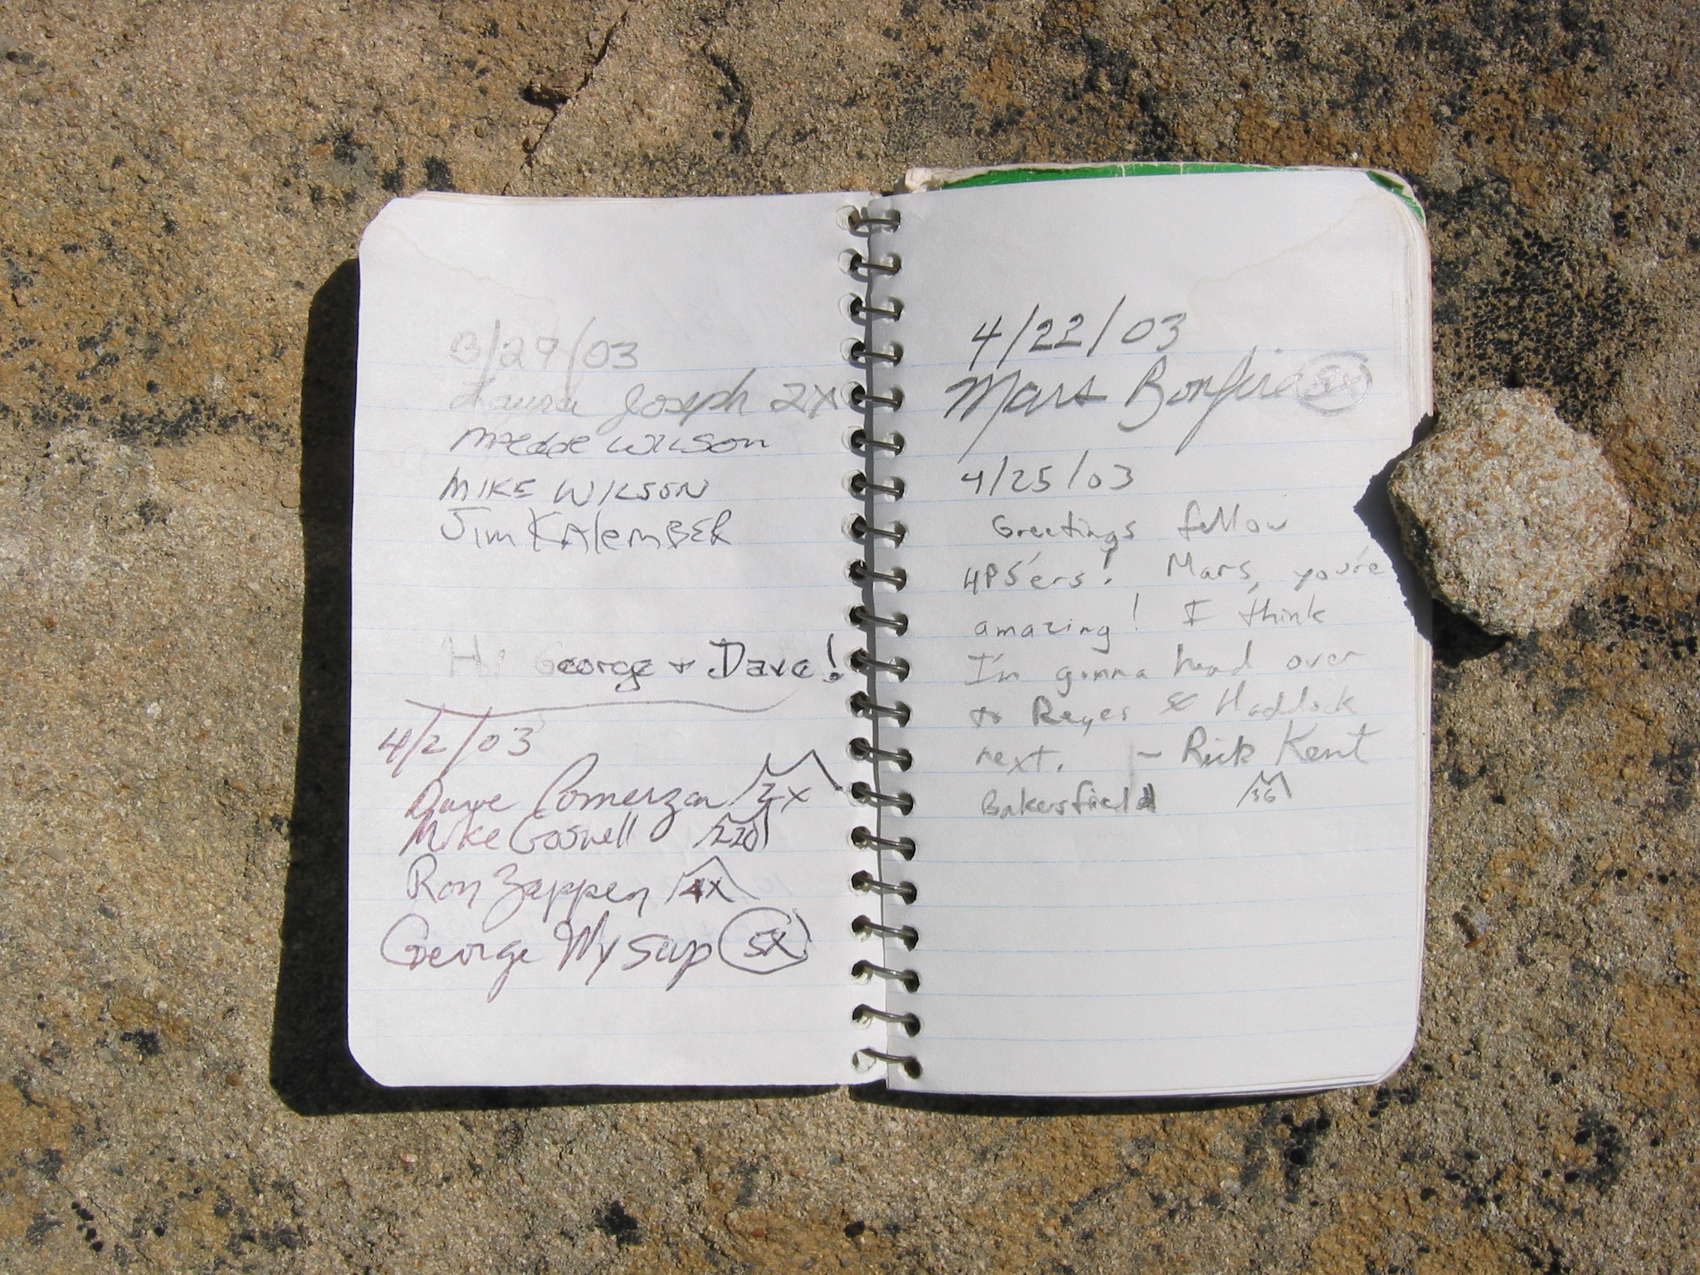 3/29/03
Laura Joseph 2X
Wilson
MIKE WILSON
JIM KAlemBER
Hi George + Dave!
4/2/03
Dave Comerzan 2X
Mike Goswell 220
Ron Zappen 4X
George Wysup 5X
4/22/03
Mars Bonfire
4/25/03
Greetings fellow
HPS'ers! Mars, you're
amazing! I think
I'm gonna head over
to Reyes & Haddock
next. - Rick Kent
Bakersfield 36